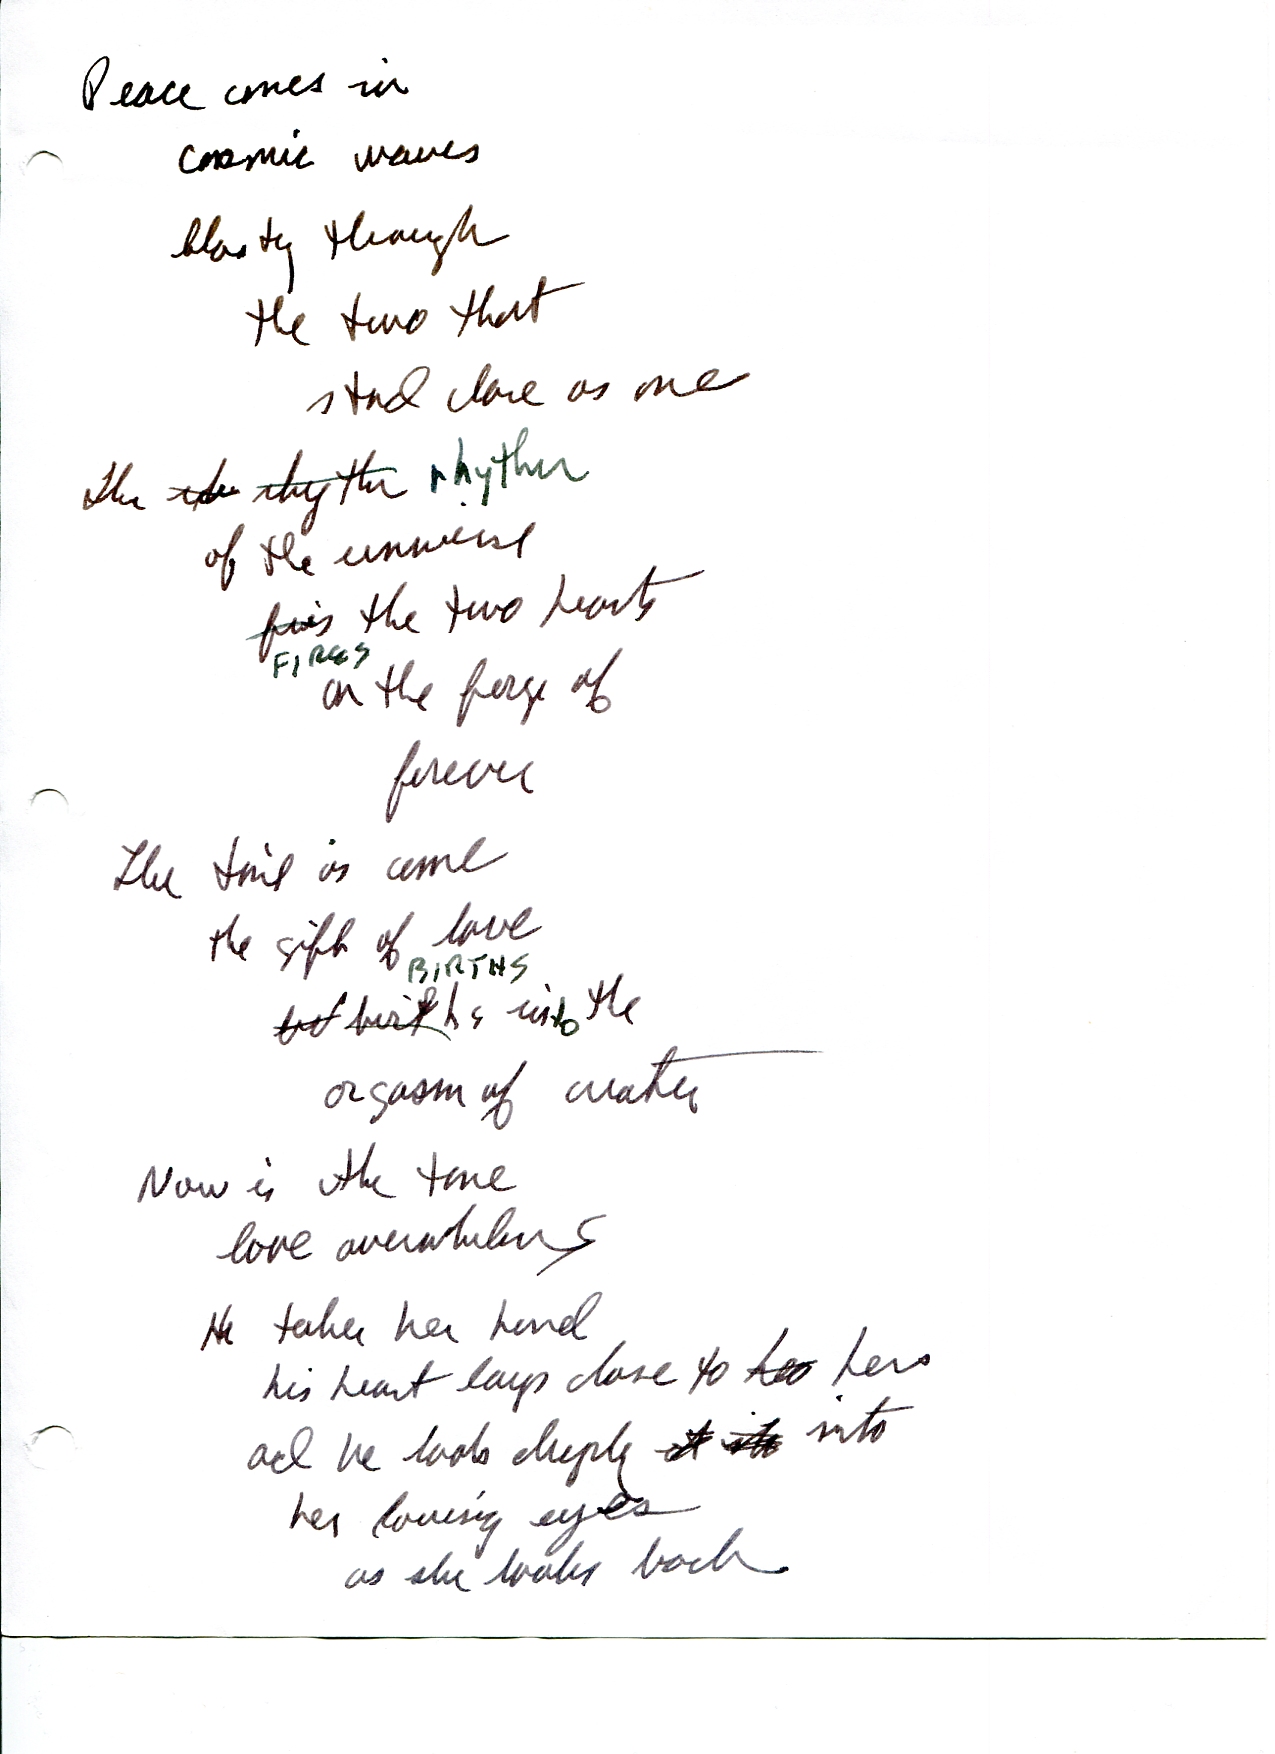 Peace comes in
cosmic waves
blasting through
the two that
stand close as one
The rhythm
of the universe
fires the two hearts
FIRES
on the forge of
forever
The time is come
the gift of love
BIRTHS
births into the
orgasm of creation
Now is the time
love overwhelms
He takes her hand
his heart lays close to her hers
and he looks deeply into
her loving eyes
as she looks back